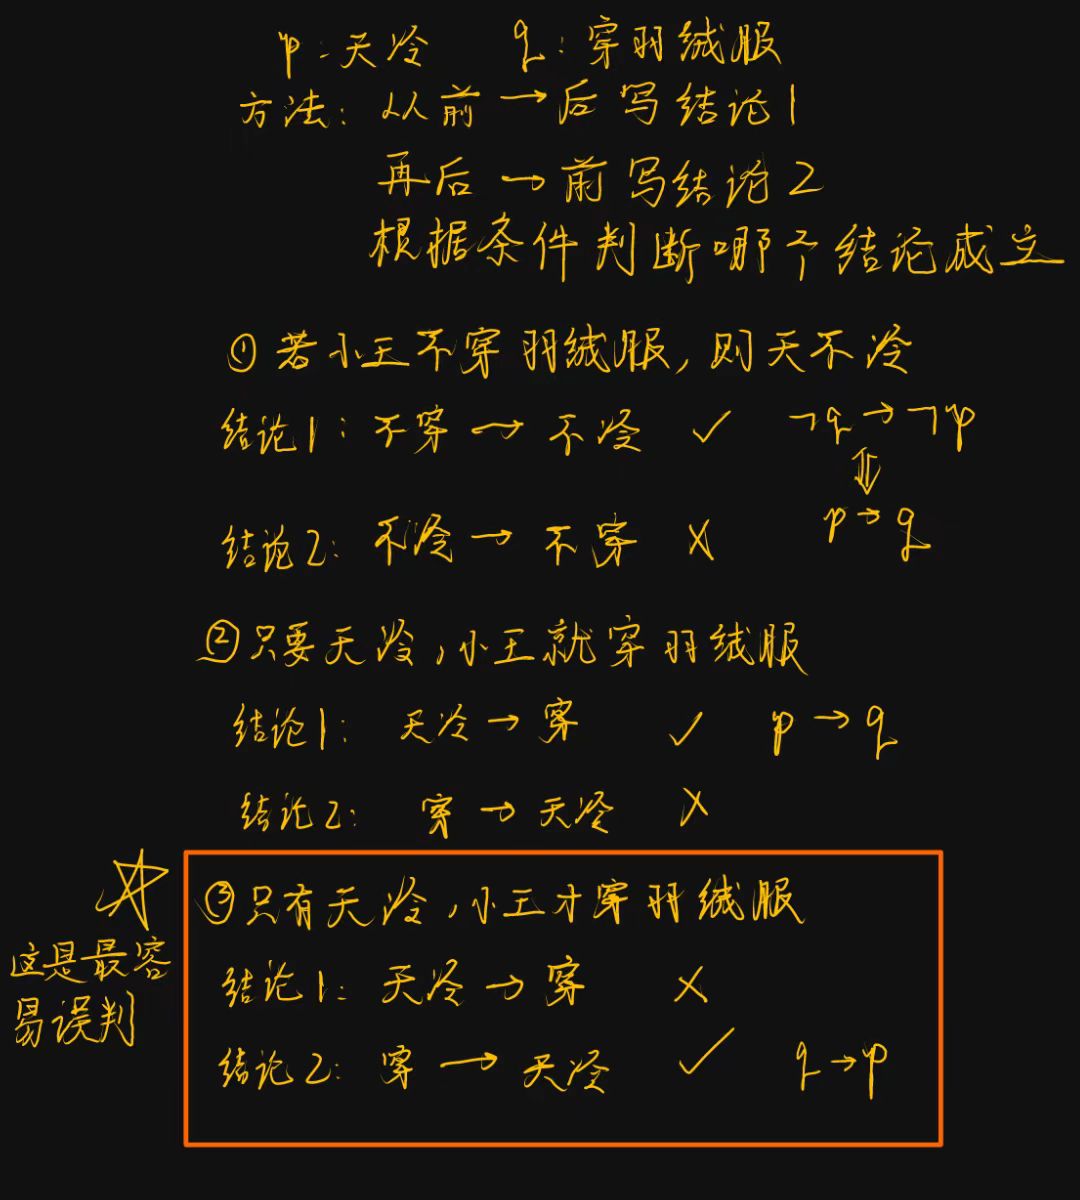 p:天冷 q:穿羽绒服
方法:从前→后写结论1
再后→前写结论2
根据条件判断哪个结论成立
①若小王不穿羽绒服,则天不冷
结论1:不穿→不冷 ✓ ¬q→¬p
⇕
结论2:不冷→不穿 X p→q
②只要天冷,小王就穿羽绒服
结论1: 天冷→穿 ✓ p→q
结论2: 穿→天冷 X
③只有天冷,小王才穿羽绒服
☆
这是最容
易误判
结论1:天冷→穿 X
结论2:穿→天冷 ✓ q→p